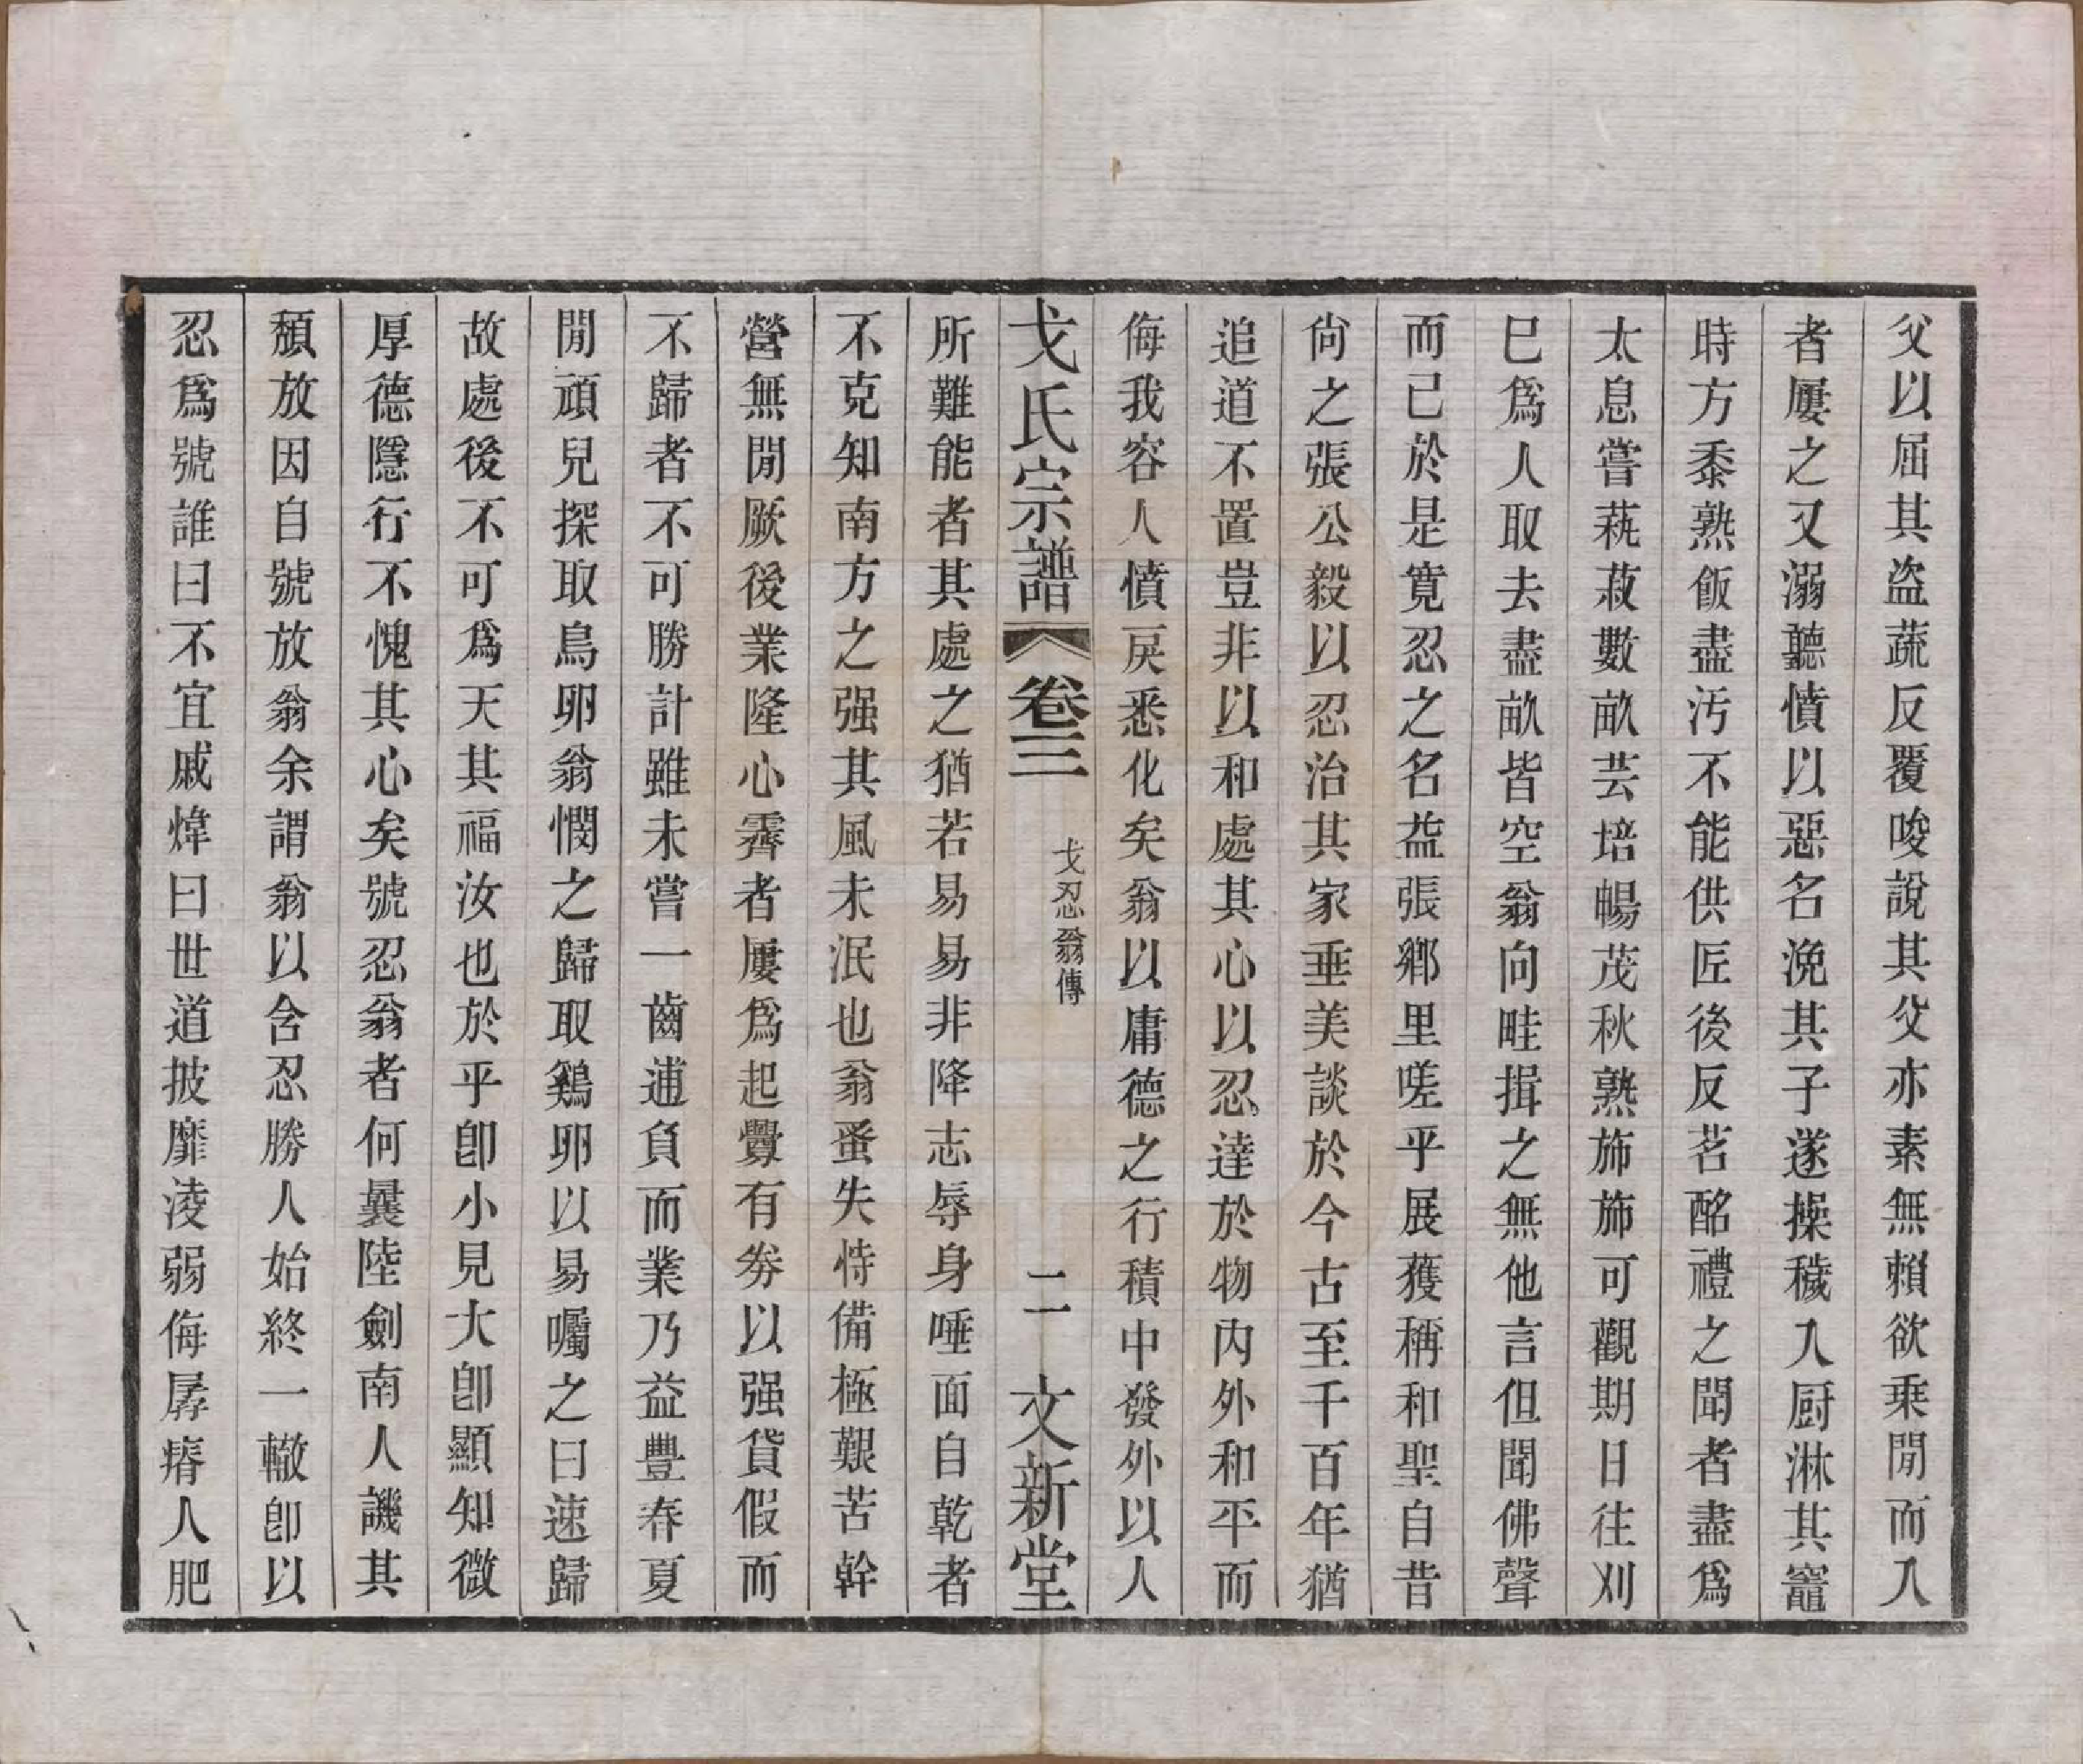 父以屈其盜蔬反覆唆說其父亦素無賴欲乗閒而入
者屢之又溺聽憤以惡名浼其子遂操穢入厨淋其竈
時方黍熟飯盡汚不能供匠後反茗酩禮之聞者盡爲
太息嘗蓺菽數畝芸培暢茂秋熟斾斾可觀期日往刈
巳爲人取去盡畝皆空翁向畦揖之無他言但聞佛聲
而己於是寛忍之名益張鄉里嗟乎展獲稱和聖自昔
尙之張公毅以忍治其家垂美談於今古至千百年猶
追道不置豈非以和處其心以忍達於物内外和平而
侮我容人憤戾悉化矣翁以庸德之行積中發外以人
戈氏宗譜
卷三
戈忍翁傳
二
文新堂
所難能者其處之猶若易易非降志辱身唾面自乾者
不克知南方之强其風未泯也翁蚤失恃備極艱苦幹
營無閒厥後業隆心霽者屢爲起釁有劵以强貸假而
不歸者不可勝計雖未嘗一齒逋負而業乃益豐春夏
閒頑兒探取鳥卵翁憫之歸取鷄卵以易囑之曰速歸
故處後不可爲天其福汝也於乎卽小見大卽顯知微
厚德隱行不愧其心矣號忍翁者何曩陸劍南人譏其
頽放因自號放翁余謂翁以含忍勝人始終一轍卽以
忍爲號誰曰不宜戚煒曰世道披靡淩弱侮孱瘠人肥